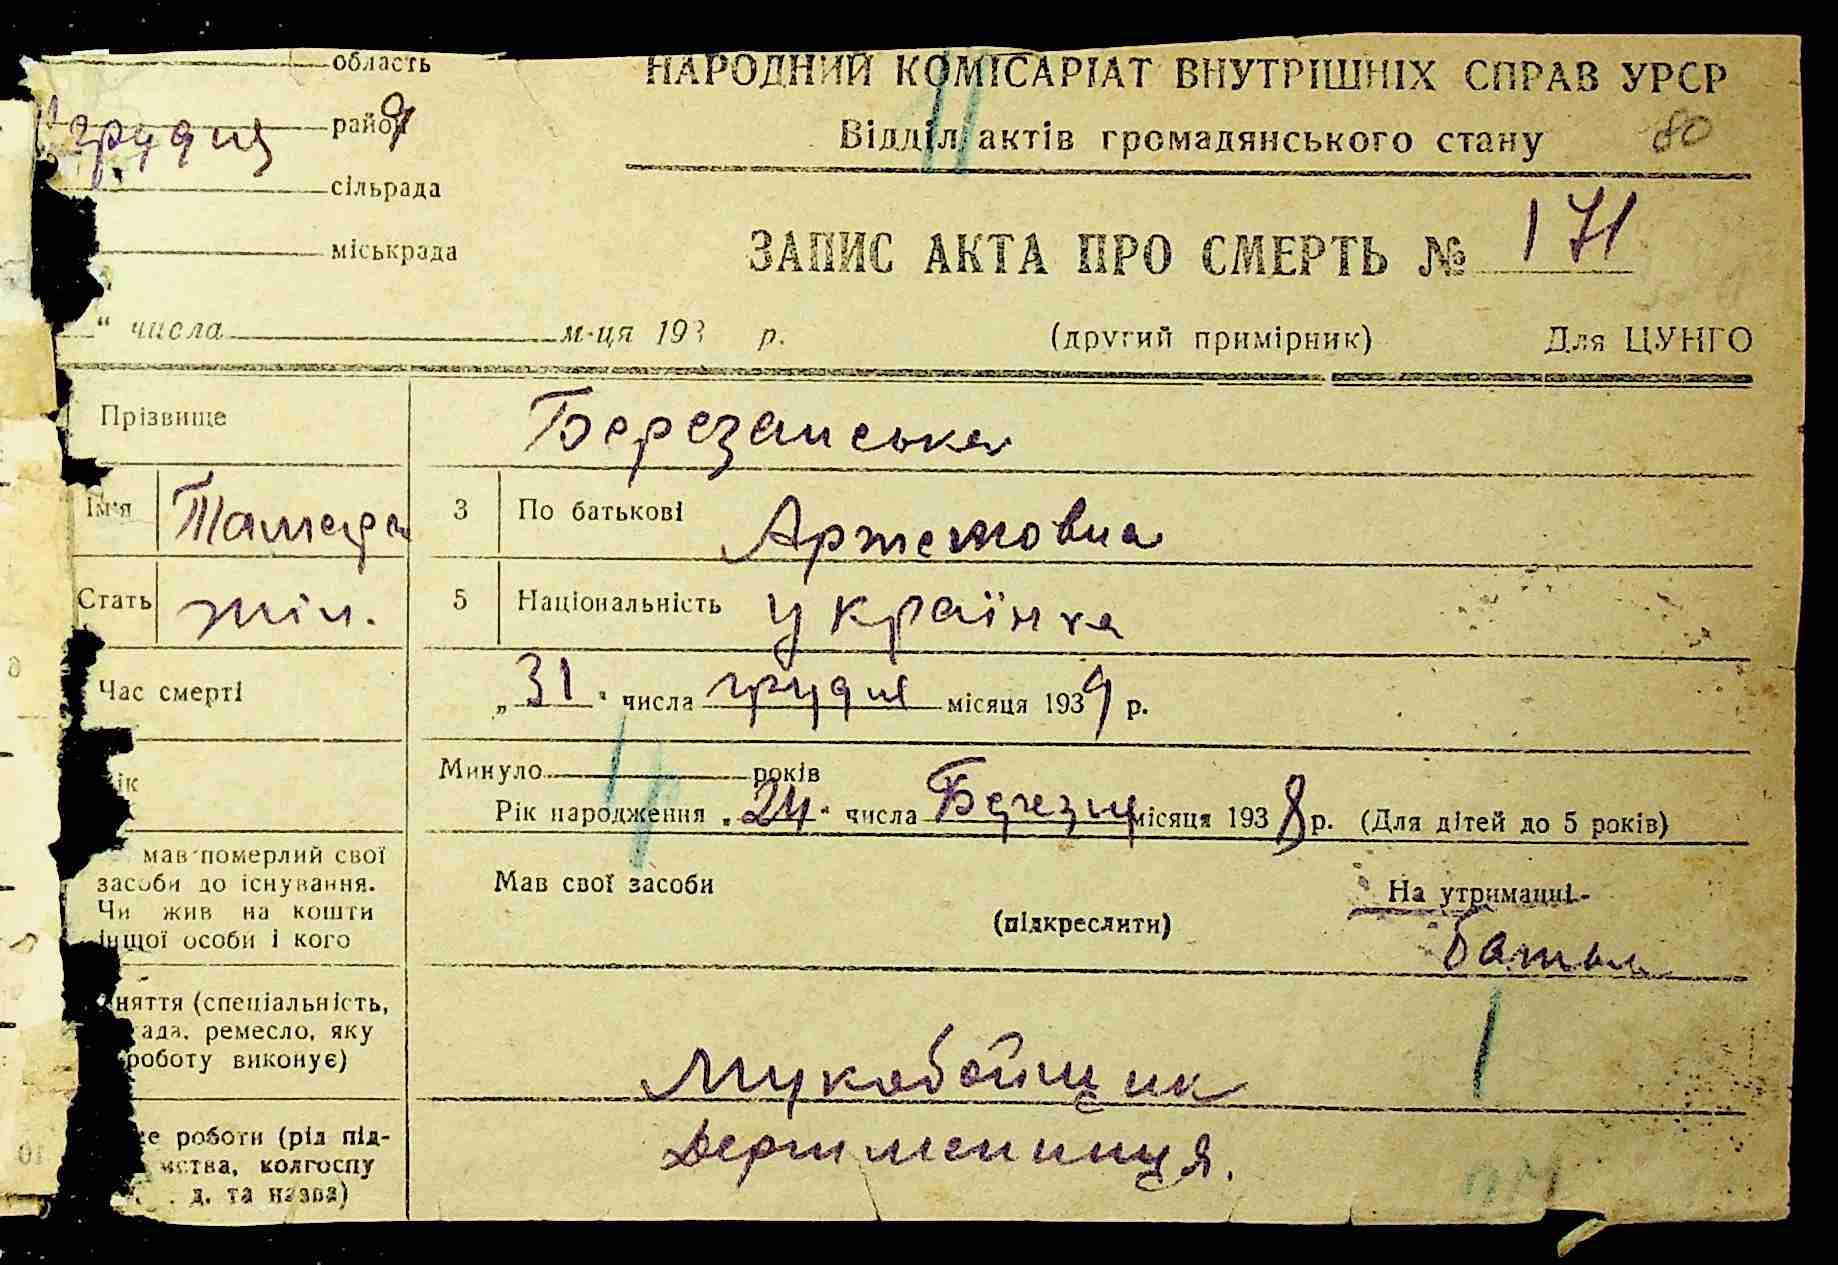 область
НАРОДНИЙ КОМІСАРІАТ ВНУТРІШНІХ СПРАВ УРСР
грудня район 9
Відділ актів громадянського стану 80
сільрада
міськрада
ЗАПИС АКТА ПРО СМЕРТЬ № 171
“ числа м-ця 193 р. (другий примірник) Для ЦУНГО
Прізвище Березанська
Ім'я Тамара 3 По батькові Артемовна
Стать жін. 5 Національність українка
Час смерті „31“ числа грудня місяця 1939 р.
ік Минуло років
Рік народження „24“ числа Березня місяця 1938 р. (Для дітей до 5 років)
мав померлий свої
засоби до існування.
Чи жив на кошти
іншої особи і кого
Мав свої засоби (підкреслити) На утриманні
батька
няття (спеціальність,
ада, ремесло, яку
роботу виконує)
Мукобойщик
це роботи (рід під-
мства, колгоспу
д. та назва)
Держмельниця.